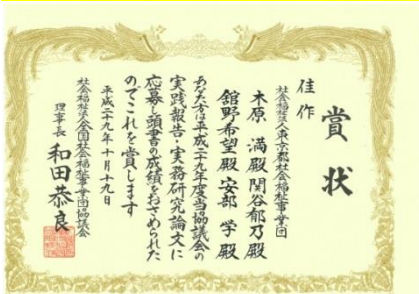 賞状
佳作
社会福祉法人東京都社会福祉事業団
木原 満殿 関谷郁乃殿
舘野希望殿 安部 学殿
あなた方は平成二十九年度当協議会の
実践報告・実務研究論文に
応募し頭書の成績をおさめられた
のでこれを賞します
平成二十九年十月十九日
社会福祉法人全国社会福祉事業団協議会
理事長 和田恭良